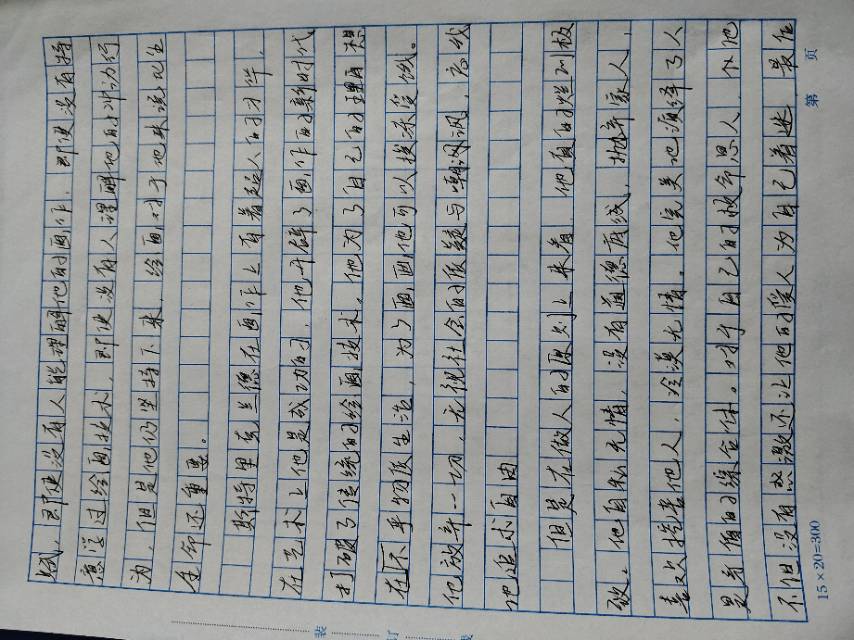 贱，即使没有人能理解他的画作，即使没有特
意学过绘画技术，即使没有人理解他的冲动行
为，但是他仍坚持下来，绘画对于他来说比生
命还重要。
斯特里克兰德在画作上有着超人的才华，
在艺术上他是成功的，他开辟了画作的新时代
打破了传统的绘画技术。他为了自己的理想
在不乎物质生活，为了画画他可以挨冻受饿。
他放弃一切，无视社会的质疑与嘲讽，
他追求自由
但是在做人的原则上来看，他真的烂到极
致。他自私无情，没有道德底线，抛弃家人，
喜欢挖苦他人，冷漠无情。他完美地演绎了人
是矛盾的综合体。对于自己的救命恩人，他
不但没有感激还让他的爱人为自己着迷
15×20=300
第 页
装 订 线